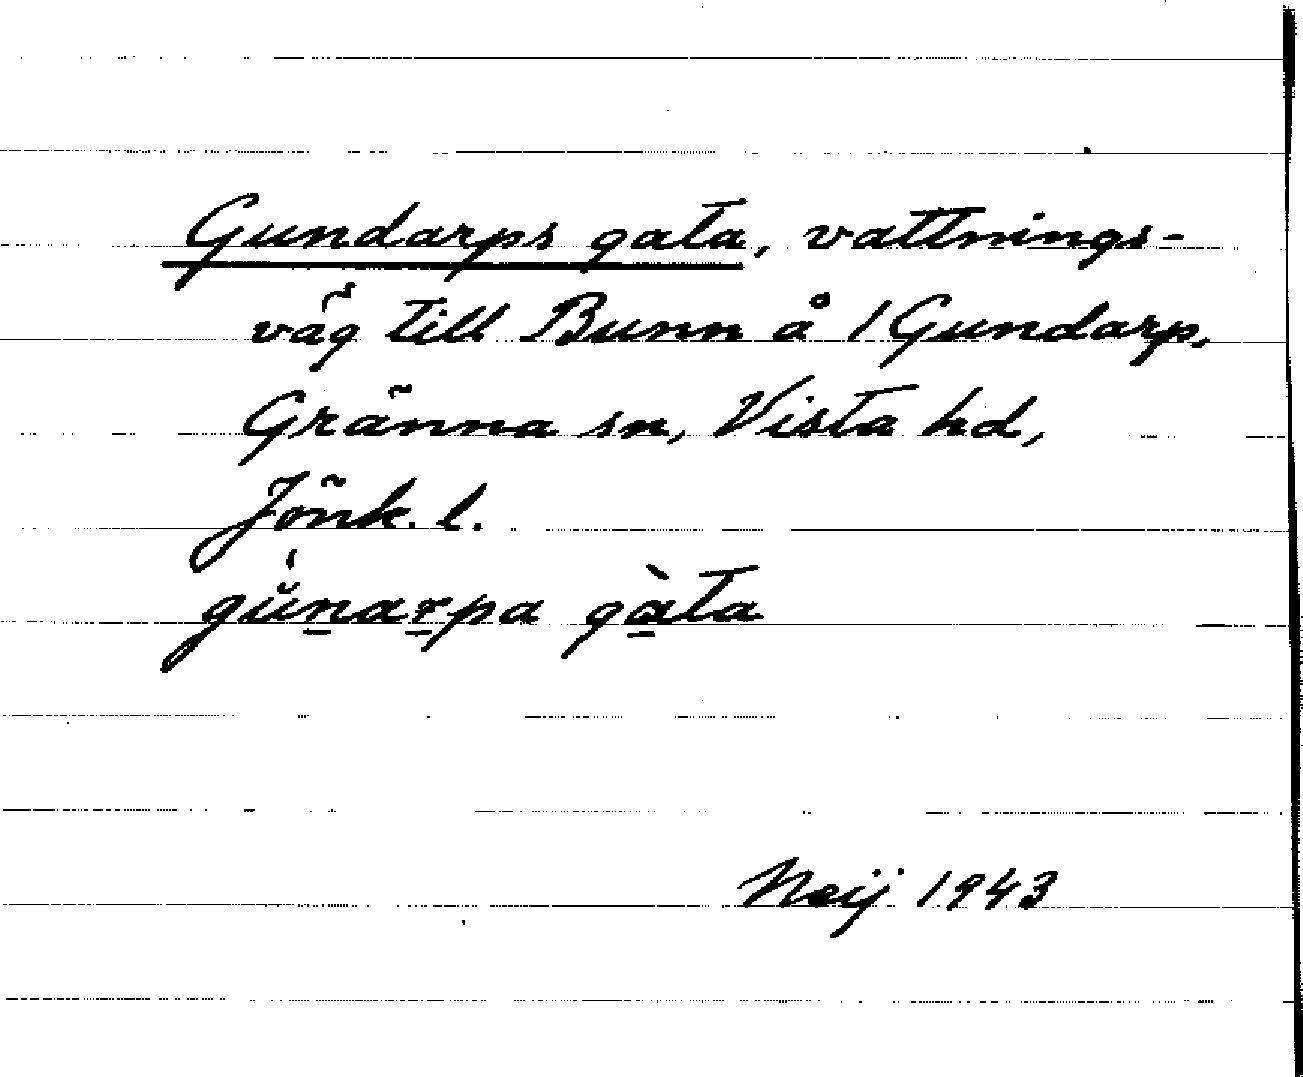 Gundarps gata, vattnings-
väg till Bunn å / Gundarp,
Gränna sn, Vista hd,
Jönk. l.
gŭ́n̲ar̲pa gà̲ta
Neij 1943